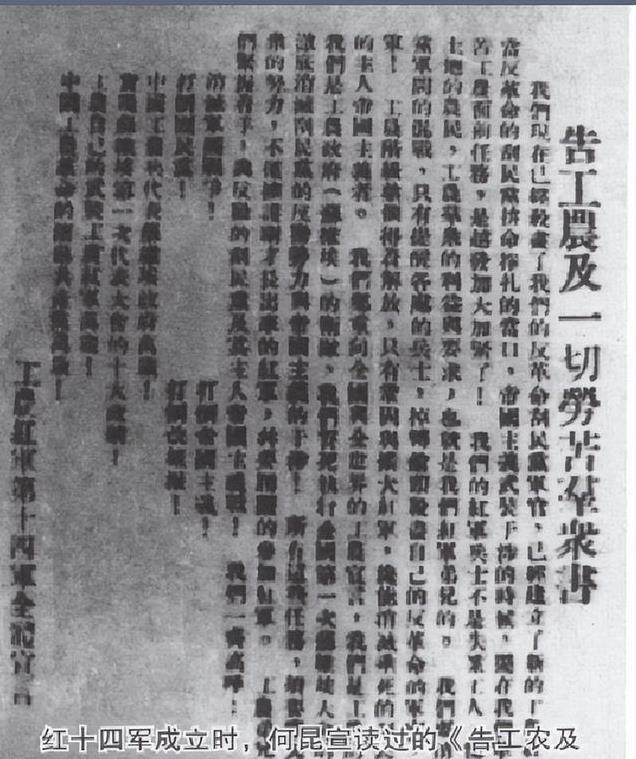 告工農及一切勞苦羣衆書
我們現在已經殺盡了我們的反革命刮民黨軍官，已經建立了新的
當反革命的刮民黨拚命掙扎的當口，帝國主義武裝干涉的時候，要在我們
苦工農面前任務，是越發加大加緊了！　我們的紅軍兵士不是失業工人
土地的農民，工農羣衆的利益與要求，也就是我們紅軍弟兄的。　我們
黨軍閥的混戰，只有提醒各處的兵士，掉轉槍頭殺盡自己的反革命的軍
軍！　工農階級要得着解放，只有鞏固與擴大紅軍，纔能消滅垂死的
的主人帝國主義者。　我們鄭重向全國與全世界的工農宣言，我們是工
我們是工農政府（蘇維埃）的衛隊，我們誓死執行全國第一次蘇維埃大
澈底消滅刮民黨的反動勢力與帝國主義的干涉！　所有這些任務，須要
衆的努力，不僅　才長出來的紅軍，　的參加紅軍。　工農
們緊握着手，　反動的刮民黨及其主人帝國主義　！　我們一齊高呼：
消滅軍閥戰爭！
打倒帝國主義！
打倒國民黨！
打倒改組派！
中國工農兵代表蘇維埃政府萬歲！
實現蘇維埃第一次代表大會的十大政綱！
工農自己的武裝工農紅軍萬歲！
中國工農革命的領導共產黨萬歲！
工農紅軍第十四軍全體官
红十四军成立时，何昆宣读过的《告工农及